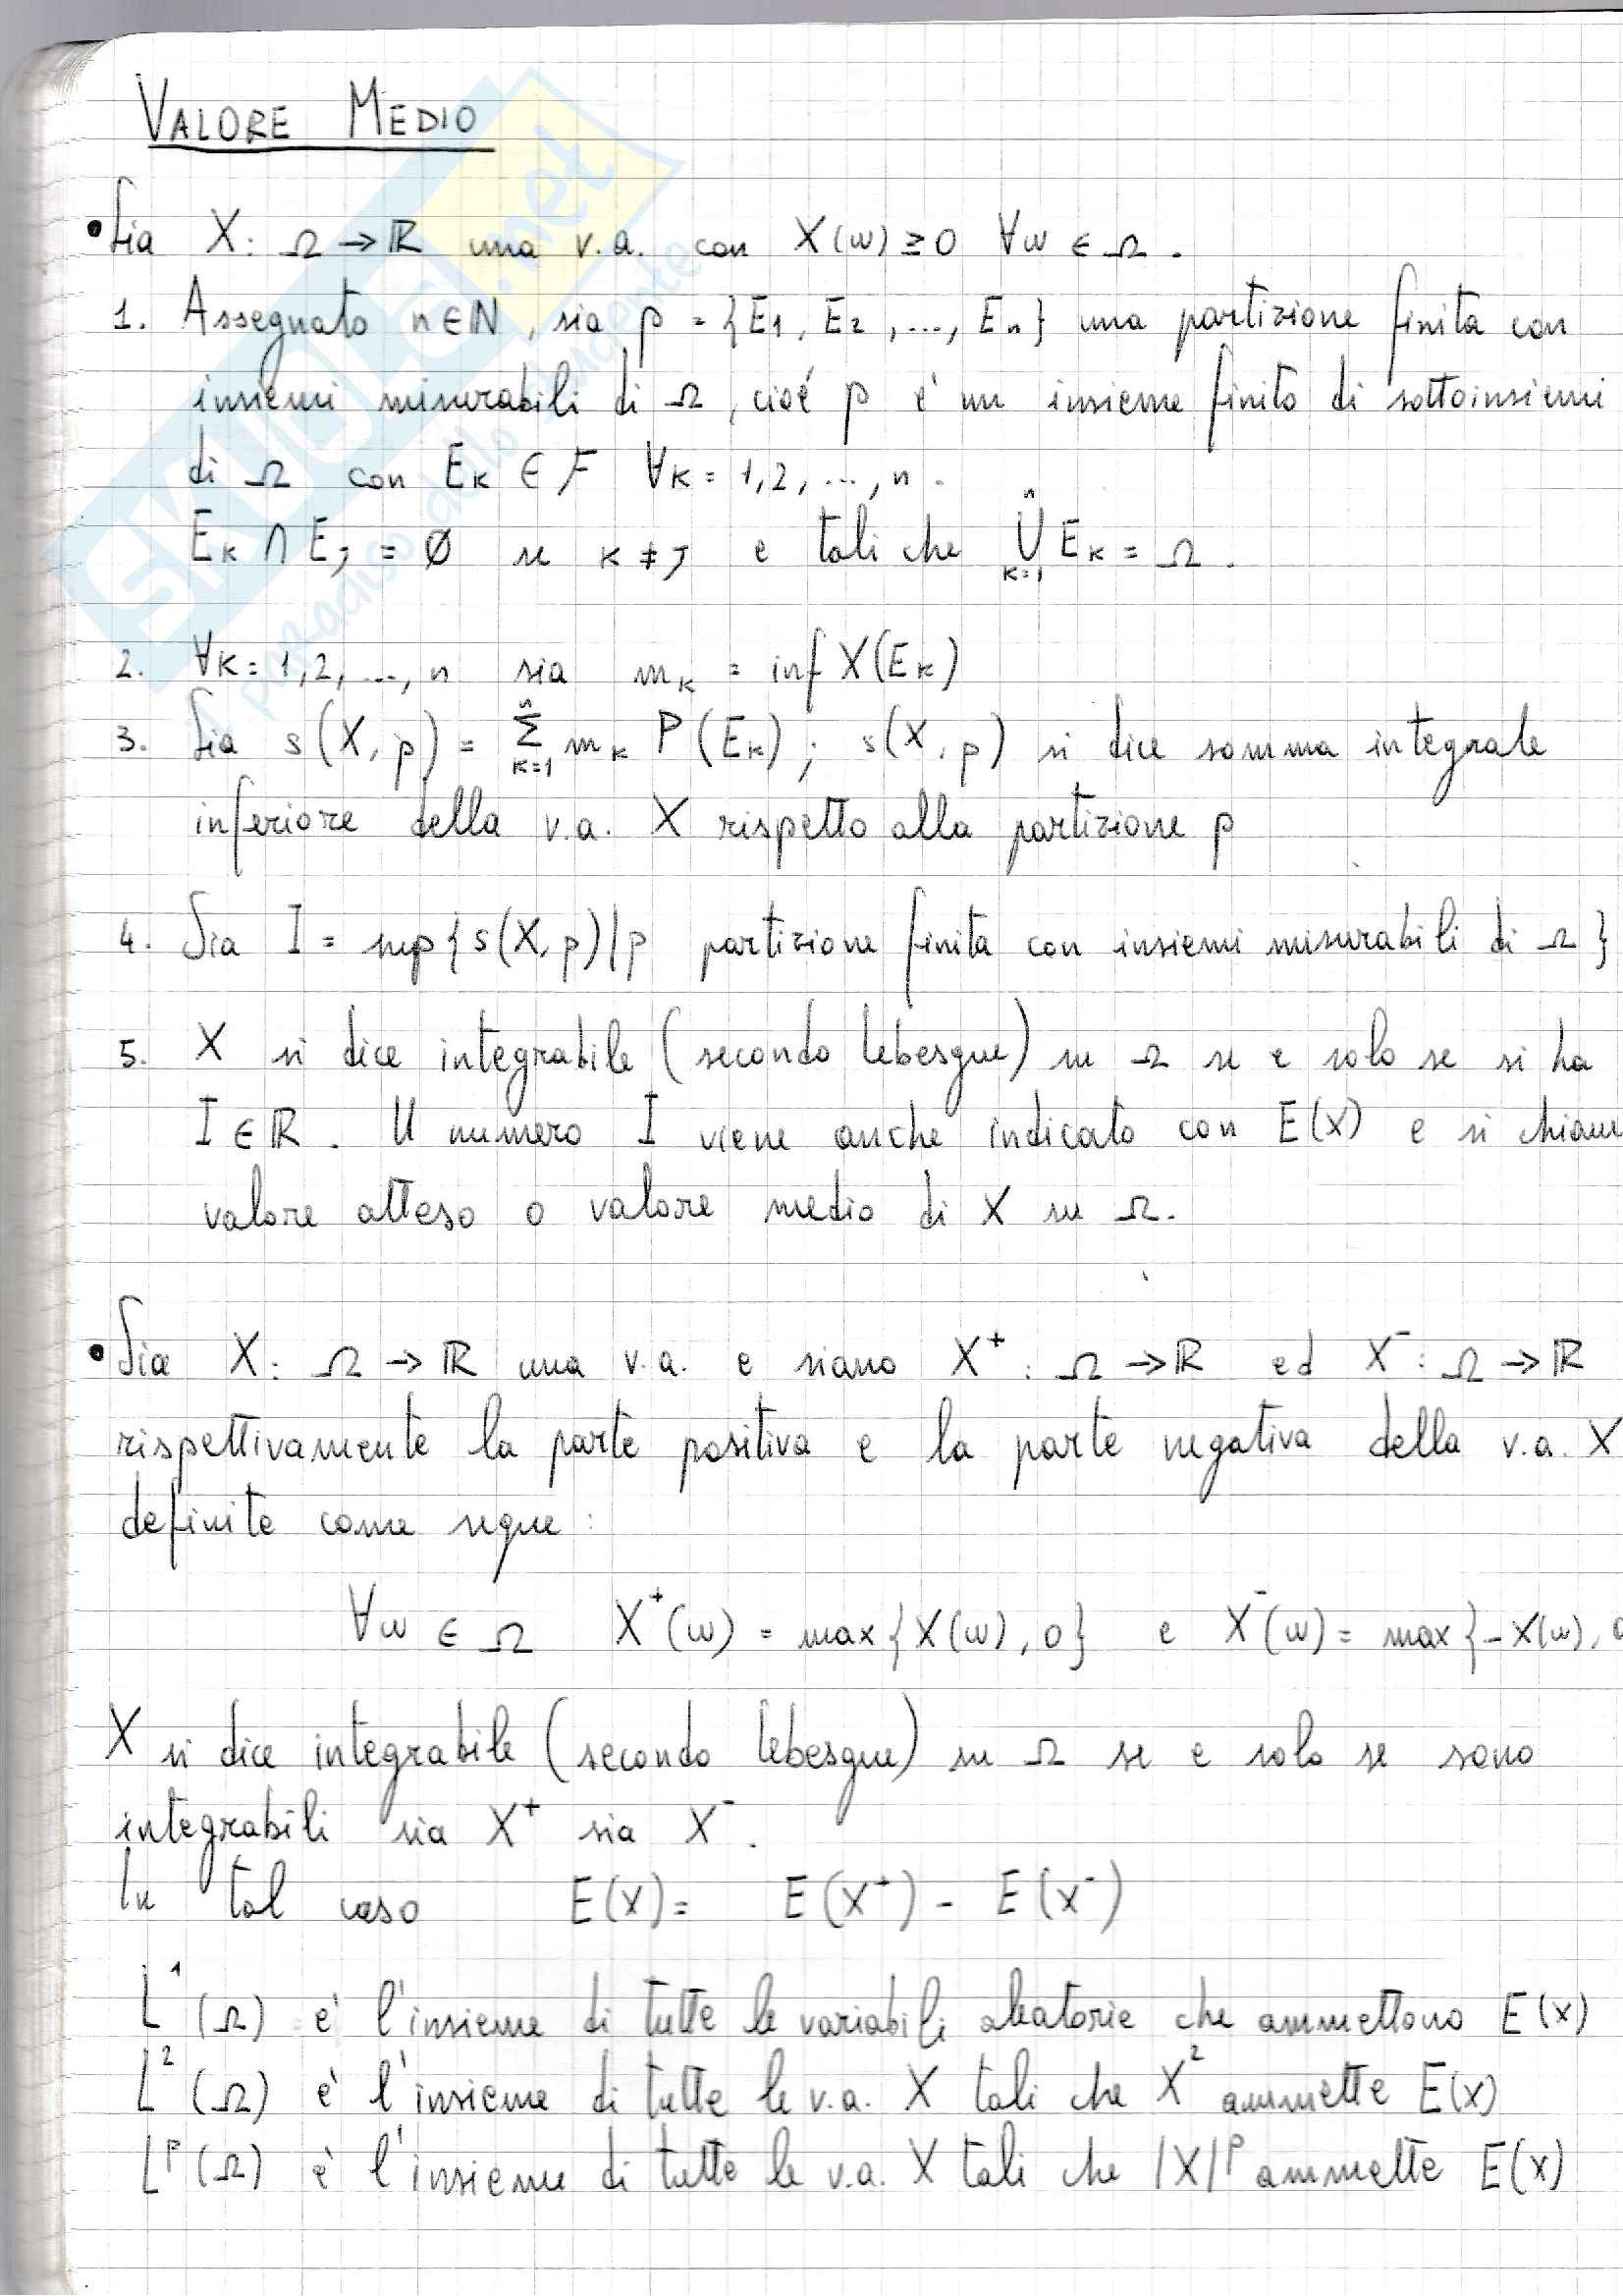 VALORE MEDIO
• Sia X: Ω → ℝ una v.a. con X(ω) ≥ 0 ∀ω ∈ Ω.
1. Assegnato n∈N, sia p = {E1, E2, ..., En} una partizione finita con
insiemi misurabili di Ω, cioé p è un insieme finito di sottoinsiemi
di Ω con Eₖ ∈ F ∀k = 1,2, ..., n.
Eₖ ∩ Eⱼ = Ø se k ≠ j e tali che ⋃ₖ₌₁ⁿ Eₖ = Ω.
2. ∀k = 1,2, ..., n sia mₖ = inf X(Eₖ)
3. Sia s(X, p) = Σₖ₌₁ⁿ mₖ P(Eₖ); s(X, p) si dice somma integrale
inferiore della v.a. X rispetto alla partizione p
4. Sia I = sup{s(X, p)/p partizione finita con insiemi misurabili di Ω}
5. X si dice integrabile (secondo Lebesgue) su Ω se e solo se si ha
I ∈ ℝ. Il numero I viene anche indicato con E(X) e si chiam
valore atteso o valore medio di X su Ω.
• Sia X: Ω → ℝ una v.a. e siano X⁺: Ω → ℝ ed X⁻: Ω → ℝ
rispettivamente la parte positiva e la parte negativa della v.a. X
definite come segue:
∀ω ∈ Ω X⁺(ω) = max{X(ω), 0} e X⁻(ω) = max{-X(ω), 0
X si dice integrabile (secondo Lebesgue) su Ω se e solo se sono
integrabili sia X⁺ sia X⁻.
In tal caso E(X) = E(X⁺) - E(X⁻)
L¹(Ω) è l'insieme di tutte le variabili aleatorie che ammettono E(X)
L²(Ω) è l'insieme di tutte le v.a. X tali che X² ammette E(X)
Lᵖ(Ω) è l'insieme di tutte le v.a. X tali che |X|ᵖ ammette E(X)
SKUOLA.net